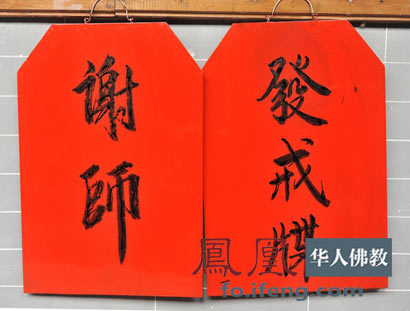 謝師
發戒牒
鳳凰
华人佛教
fo.ifeng.com